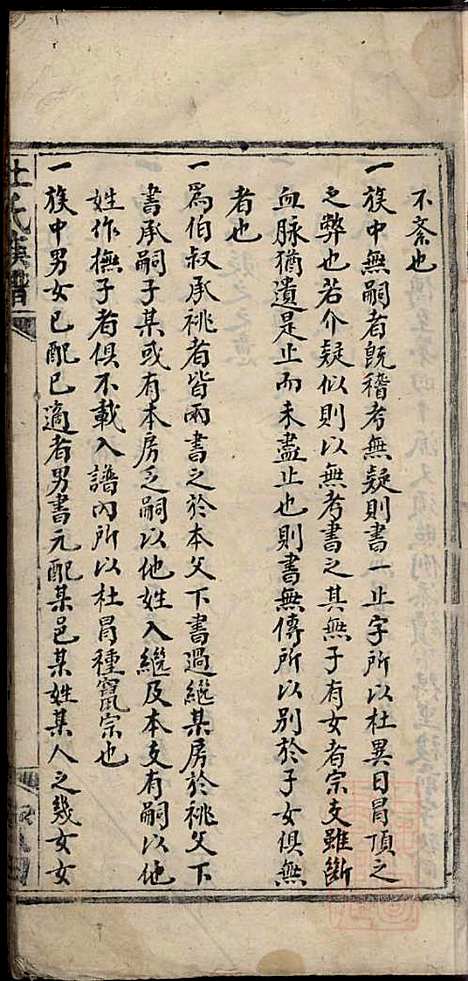 不紊也
一族中無嗣者既稽考無疑則書一止字所以杜異日冒頂之
之弊也若介疑似則以無考書之其無子有女者宗支雖斷
血脉猶遺是止而未盡止也則書無傳所以别於子女俱無
者也
一爲伯叔承祧者皆兩書之於本父下書過繼某房於祧父下
書承嗣子某或有本房乏嗣以他姓入繼及本支有嗣以他
姓作撫子者俱不載入譜內所以杜冒種竄宗也
一族中男女已配已適者男書元配某邑某姓某人之幾女女
杜氏族譜